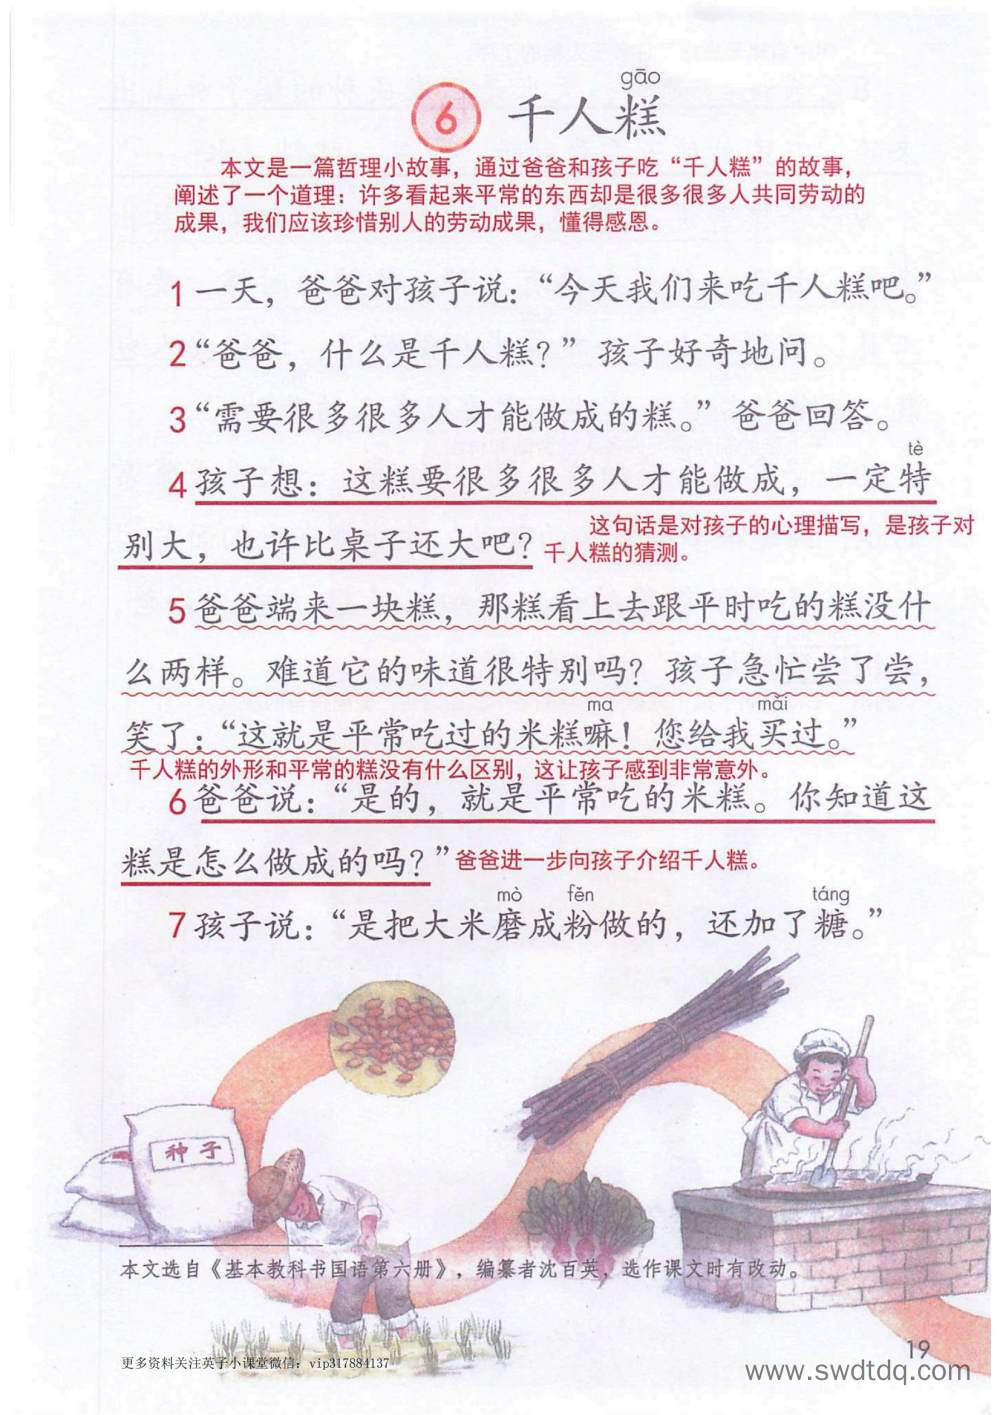 gāo
6 千人糕
本文是一篇哲理小故事，通过爸爸和孩子吃“千人糕”的故事，
阐述了一个道理：许多看起来平常的东西却是很多很多人共同劳动的
成果，我们应该珍惜别人的劳动成果，懂得感恩。
1 一天，爸爸对孩子说：“今天我们来吃千人糕吧。”
2 “爸爸，什么是千人糕？”孩子好奇地问。
3 “需要很多很多人才能做成的糕。”爸爸回答。
tè
4 孩子想：这糕要很多很多人才能做成，一定特
别大，也许比桌子还大吧？
这句话是对孩子的心理描写，是孩子对
千人糕的猜测。
5 爸爸端来一块糕，那糕看上去跟平时吃的糕没什
么两样。难道它的味道很特别吗？孩子急忙尝了尝，
ma mǎi
笑了：“这就是平常吃过的米糕嘛！您给我买过。”
千人糕的外形和平常的糕没有什么区别，这让孩子感到非常意外。
6 爸爸说：“是的，就是平常吃的米糕。你知道这
糕是怎么做成的吗？”爸爸进一步向孩子介绍千人糕。
mò fěn táng
7 孩子说：“是把大米磨成粉做的，还加了糖。”
种子
本文选自《基本教科书国语第六册》，编纂者沈百英，选作课文时有改动。
更多资料关注英子小课堂微信：vip317884137
19
www.swdtdq.com